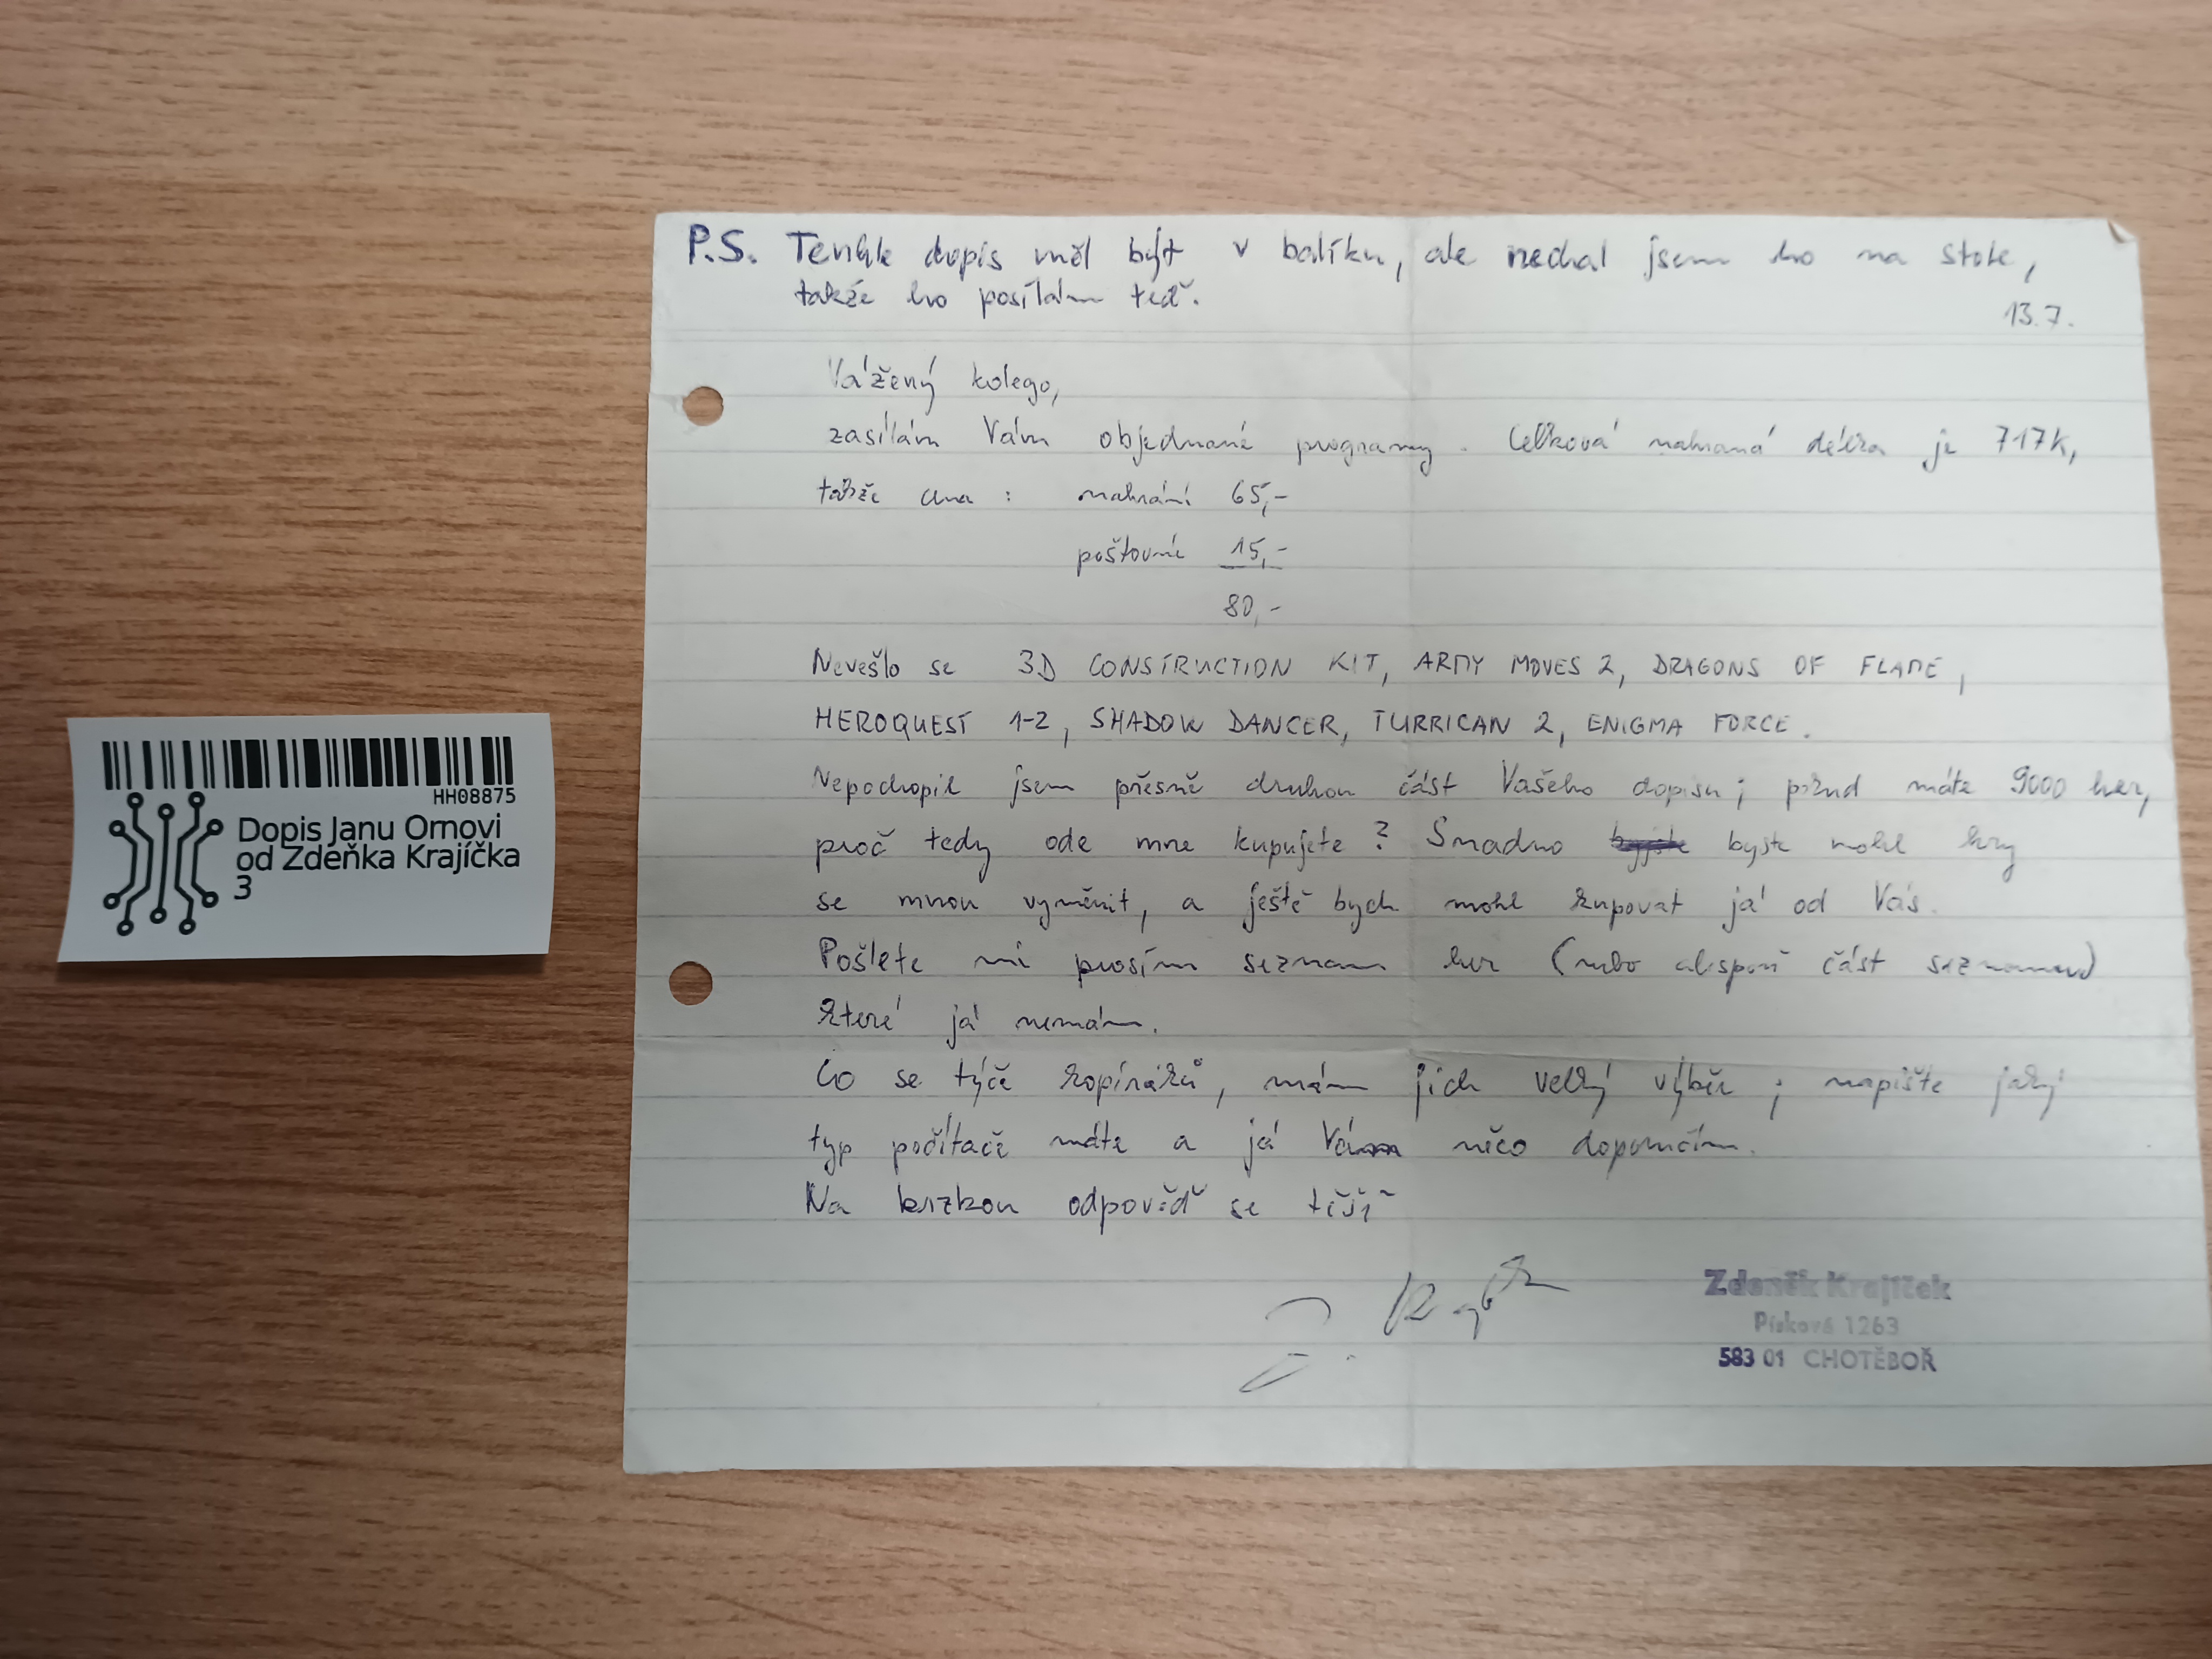 HH08875
Dopis Janu Ornovi
od Zdeňka Krajíčka
3
P.S. Tenhle dopis měl být v balíku, ale nechal jsem ho na stole,
takže ho posílám teď.
13.7.
Vážený kolego,
zasílám Vám objednané programy. Celková nahraná délka je 717K,
takže cena : nahrání 65,-
poštovné 15,-
80,-
Nevešlo se 3D CONSTRUCTION KIT, ARMY MOVES 2, DRAGONS OF FLAME,
HEROQUEST 1-2, SHADOW DANCER, TURRICAN 2, ENIGMA FORCE.
Nepochopil jsem přesně druhou část Vašeho dopisu; pokud máte 9000 her,
proč tedy ode mne kupujete? Snadno byste mohl hry
se mnou vyměnit, a ještě bych mohl kupovat já od Vás.
Pošlete mi prosím seznam her (nebo alespoň část seznamu)
které já nemám.
Co se týče kopíráků, mám jich velký výběr; napište jaký
typ počítače máte a já Vám něco doporučím.
Na brzkou odpověď se těší
Zdeněk Krajíček
Písková 1263
583 01 CHOTĚBOŘ